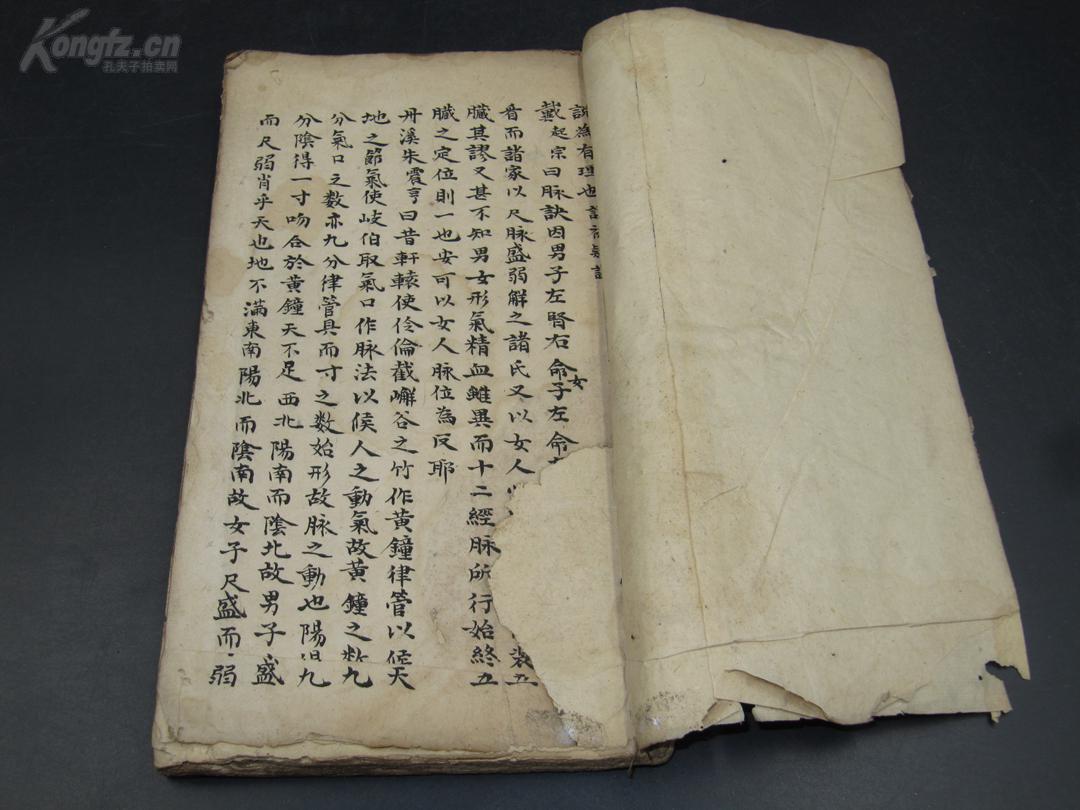 Kongfz.cn
孔夫子拍卖网
説為有理也諸
戴起宗曰脉訣因男子左腎右命女子左命
看而諸家以尺脉盛弱解之諸氏又以女人
臟其謬又甚不知男女形氣精血雖異而十二經脉所行始終五
臟之定位則一也安可以女人脉位為反耶
丹溪朱震亨曰昔軒轅使伶倫截嶰谷之竹作黄鐘律管以候天
地之節氣使岐伯取氣口作脉法以候人之動氣故黄鐘之数九
分氣口之数亦九分律管具而寸之数始形故脉之動也陽得九
分陰得一寸吻合於黄鐘天不足西北陽南而陰北故男子盛
而尺弱肖乎天也地不滿東南陽北而陰南故女子尺盛而弱